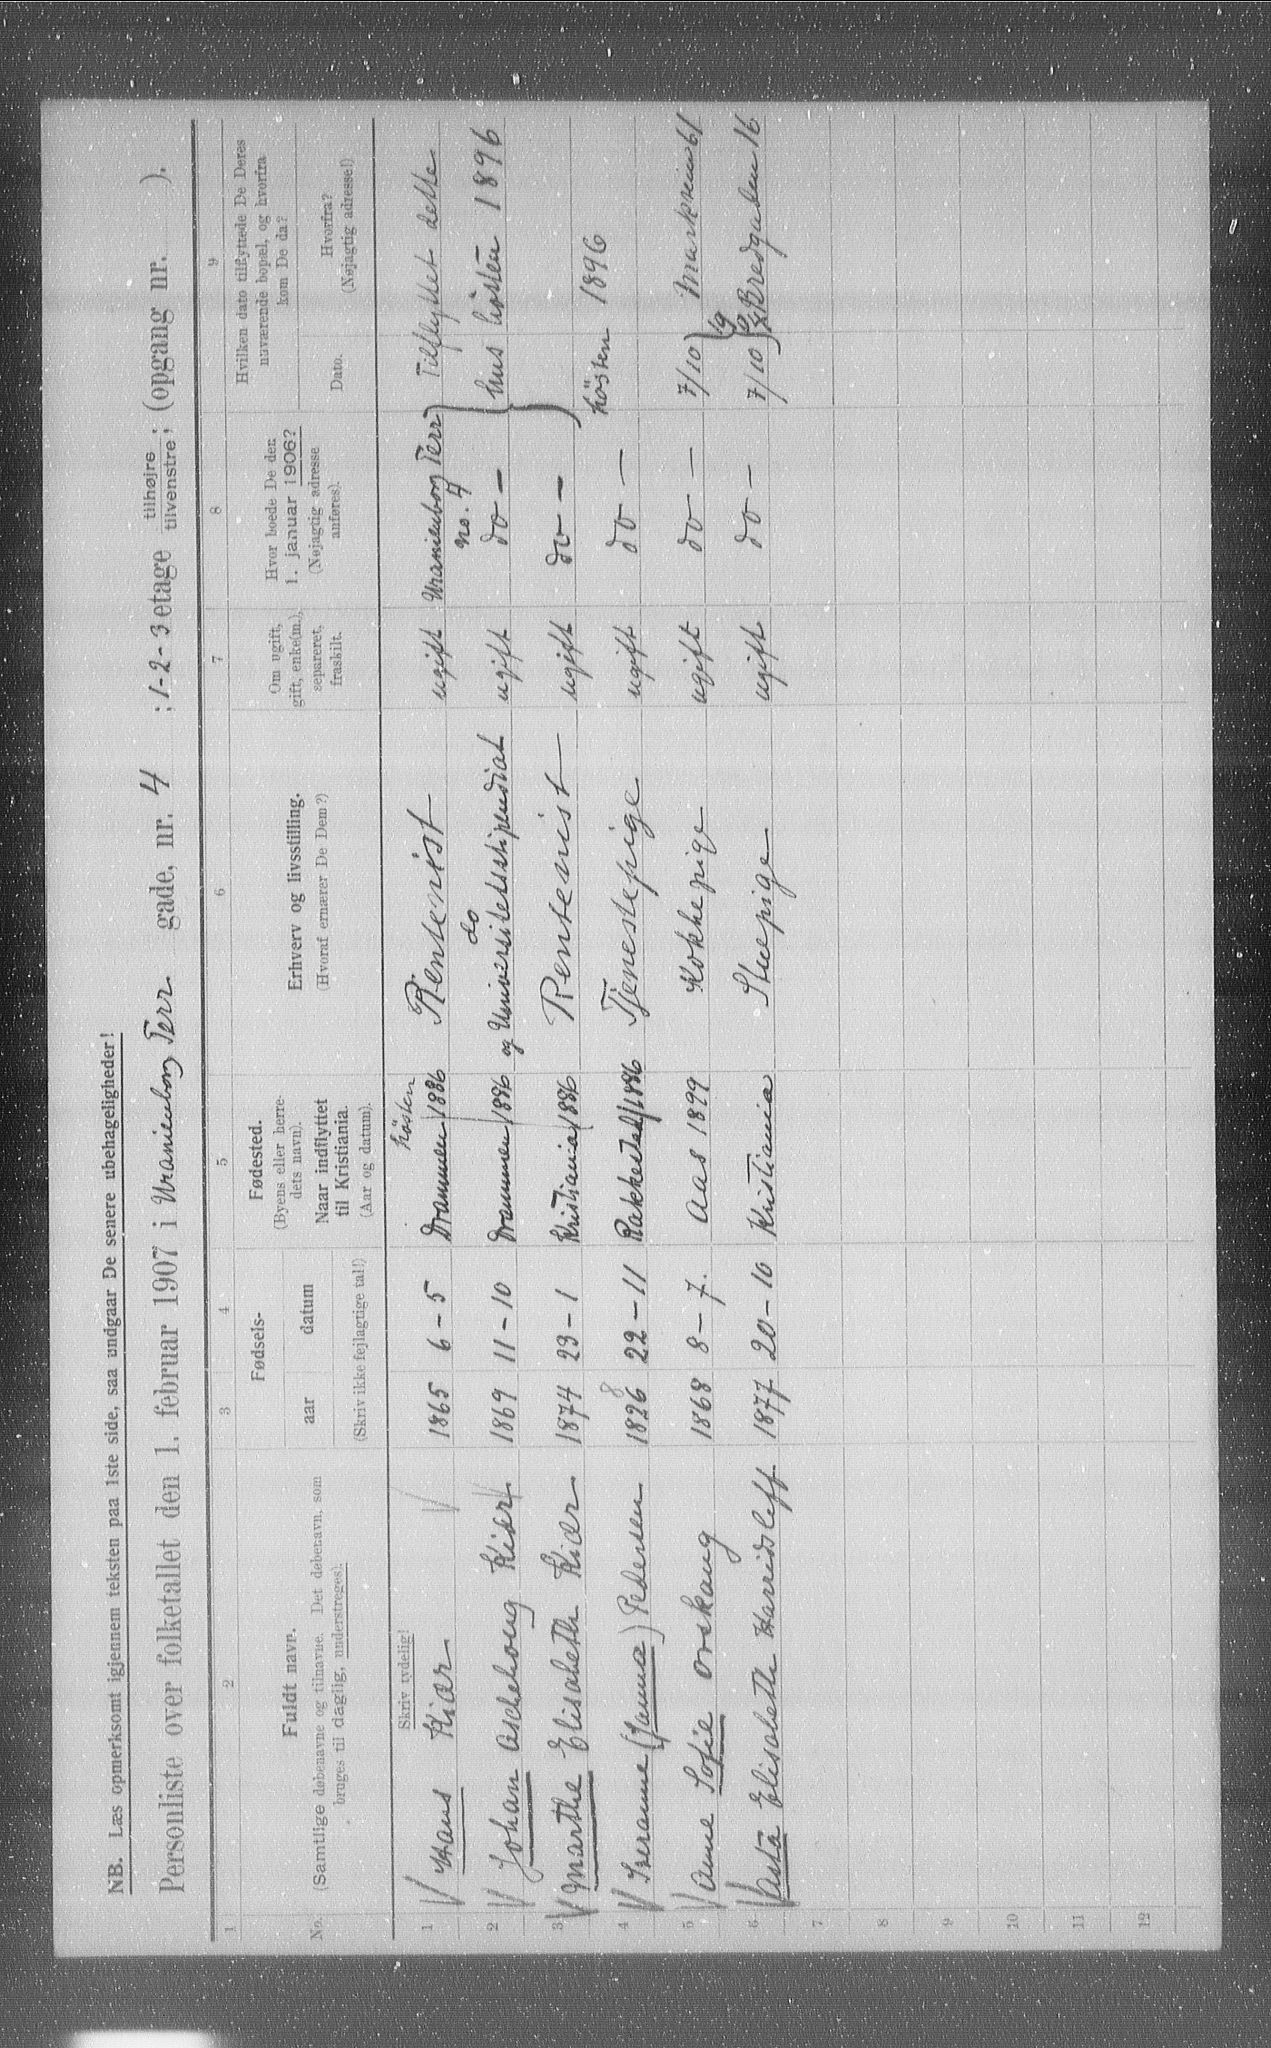 NB. Læs opmerksomt igjennem teksten paa 1ste side, saa undgaar De senere ubehageligheder!
Personliste over folketallet den 1. februar 1907 i Uranienborg Terr. gade, nr. 4 ; 1-2-3 etage tilhøjre tilvenstre ; (opgang nr. ).
1 2 3 4 5 6 7 8 9
No. Fuldt navn. (Samtlige døbenavne og tilnavne. Det døbenavn, som bruges til daglig, understreges). Skriv tydelig!
Fødsels- aar datum (Skriv ikke fejlagtige tal!)
Fødested. (Byens eller herredets navn). Naar indflyttet til Kristiania. (Aar og datum).
Erhverv og livsstilling. (Hvoraf ernærer De Dem?)
Om ugift, gift, enke(m.), separeret, fraskilt.
Hvor boede De den 1. januar 1906? (Nøjagtig adresse anføres).
Hvilken dato tilflyttede De Deres nuværende bopæl, og hvorfra kom De da? Dato. Hvorfra? (Nøjagtig adresse!)
1 Hans Kiær 1865 6-5 Drammen høsten 1886 Rentenist ugift Uranienborg Terr no. 4 Tilflyttet dette
2 Johan Aschehoug Kiær 1869 11-10 Drammen 1886 do og Universitetsstipendiat ugift do - hus hösten 1896
3 Marthe Elisabeth Kiær 1874 23-1 Kristiania 1886 Rentenist ugift do -
4 (Janna) Pedersen 1826 8 22-11 Rakkestad 1886 Tjenestepige ugift do - hösten 1896
5 Anne Sofie Orskaug 1868 8-7. Aas 1899 Kokkepige ugift do - 7/10 61
6 Asta Elisabeth 1877 20-10 Kristiania Stuepige ugift do - 7/10 Bredgaden 16
7
8
9
10
11
12